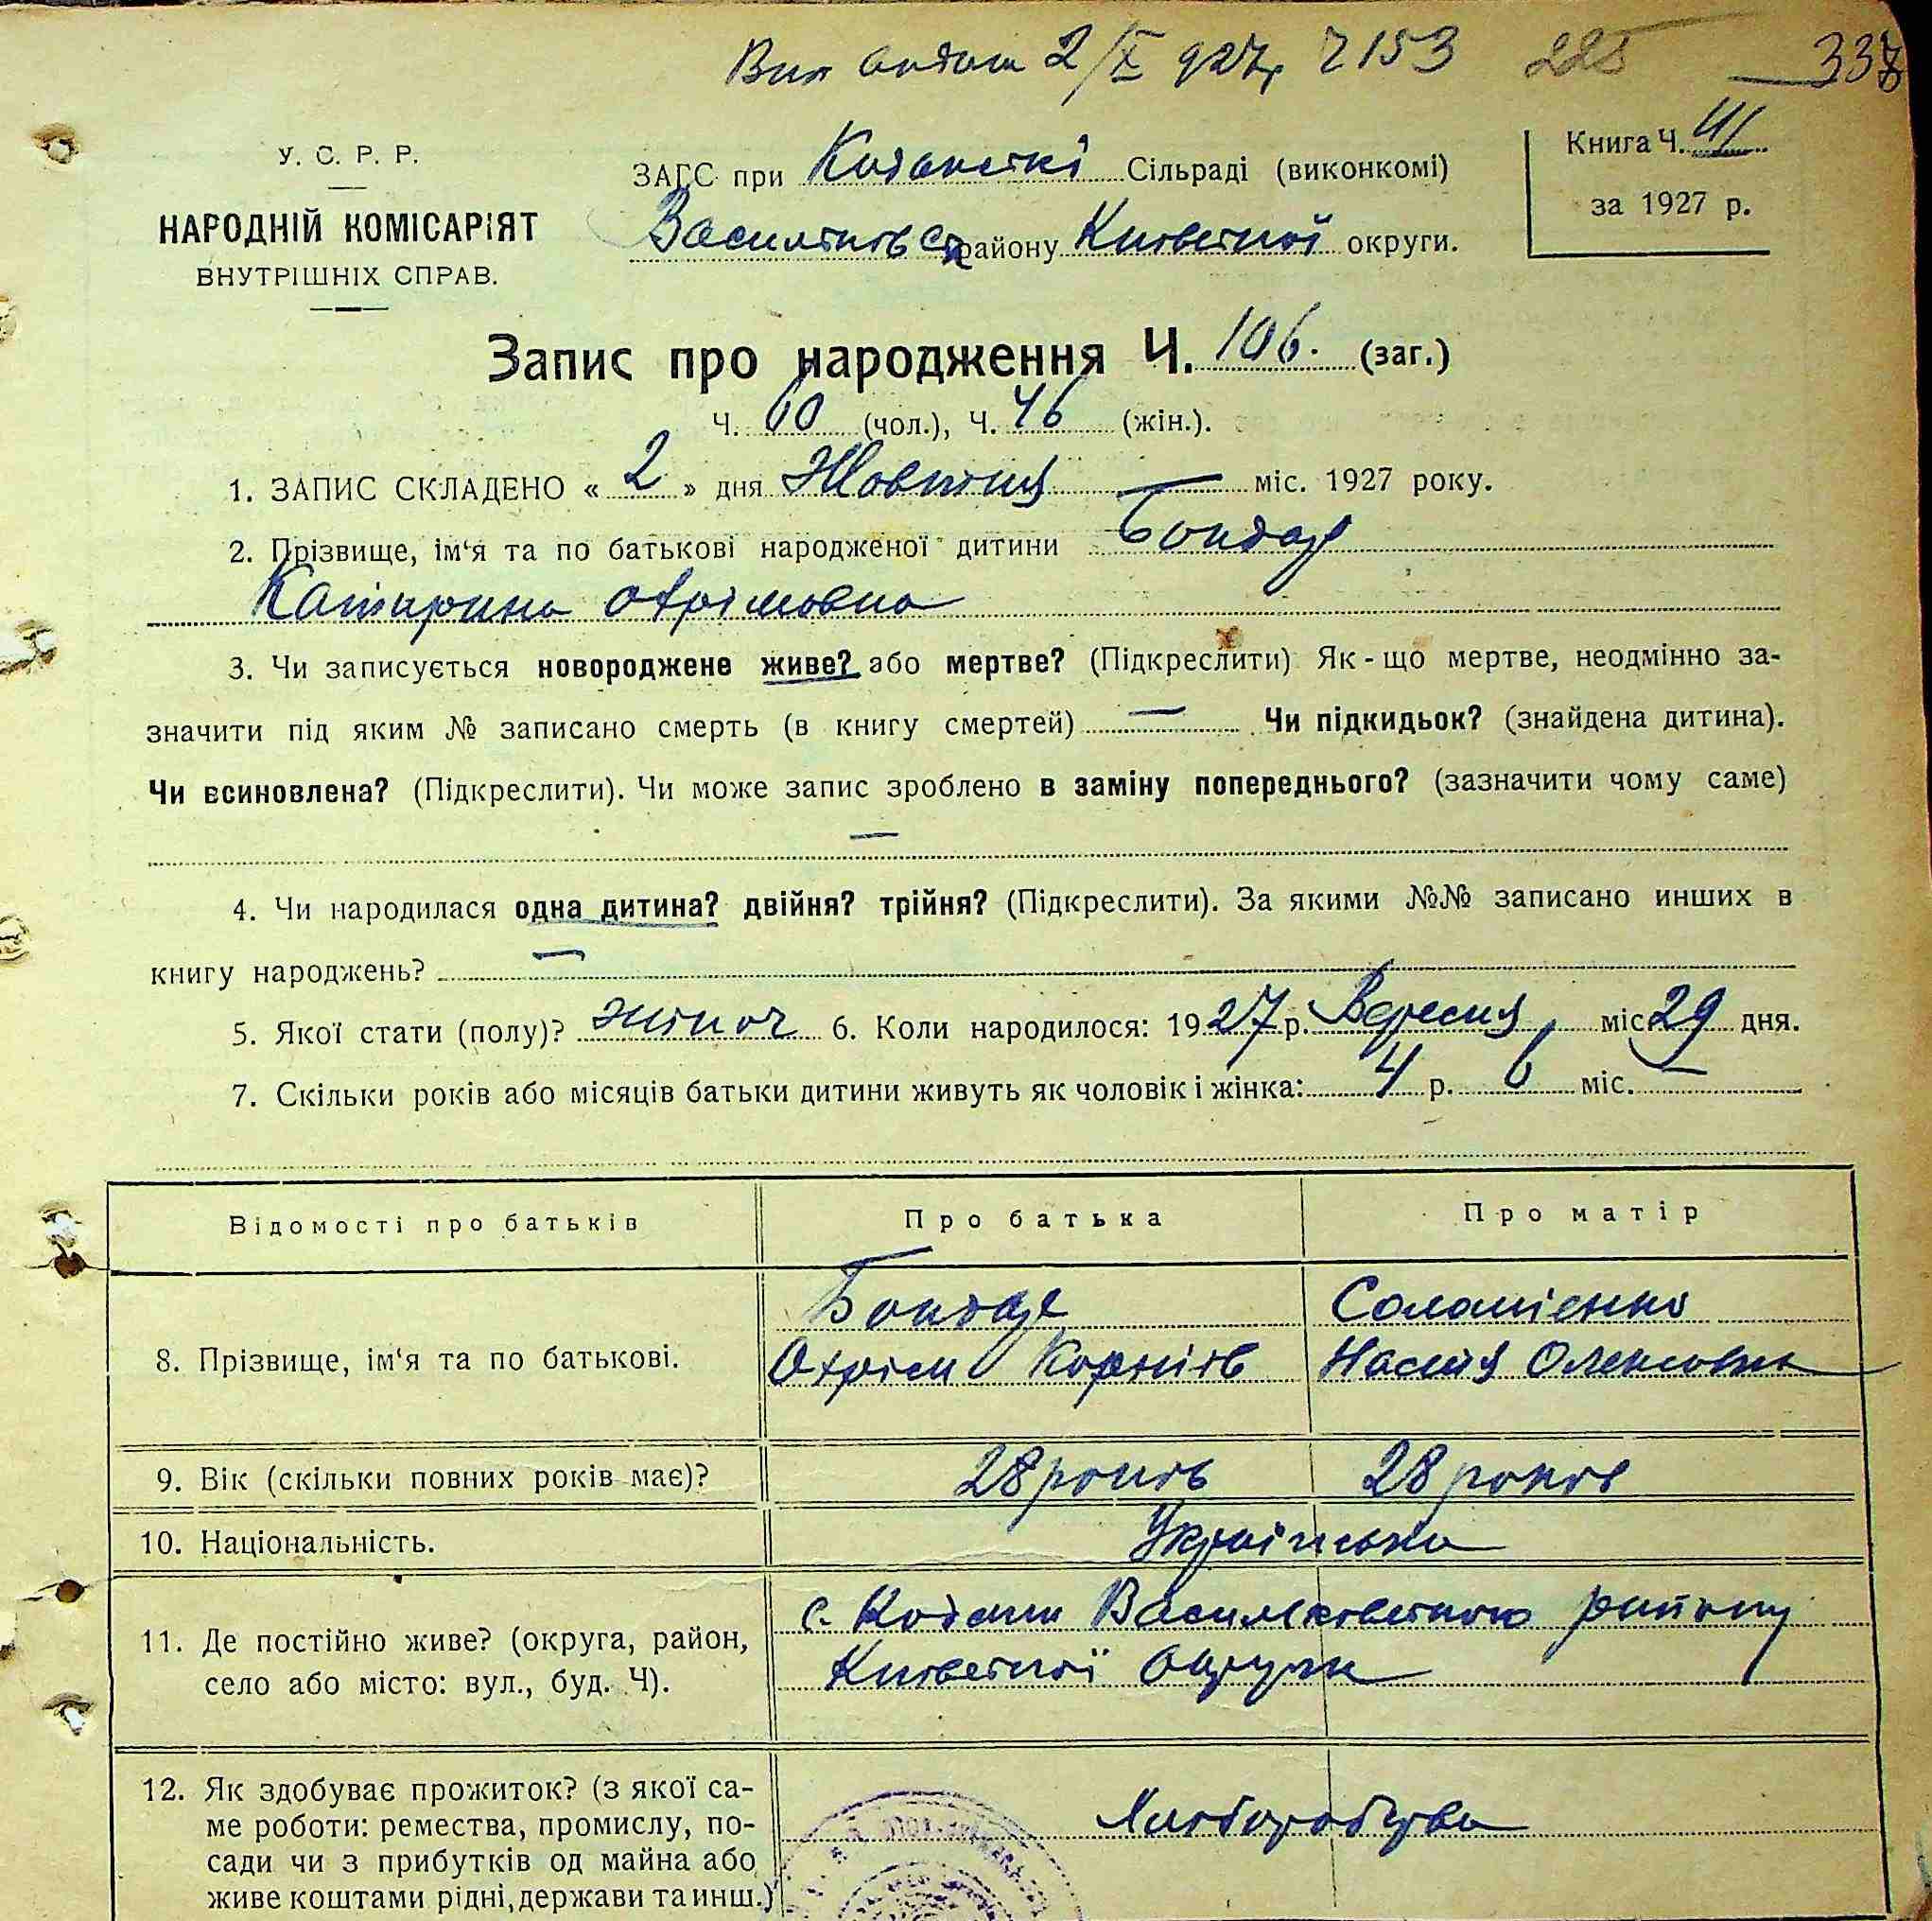 Вип видан 2/X 927р Ч 153 225 338
У. С. Р. Р.
НАРОДНІЙ КОМІСАРІЯТ
ВНУТРІШНІХ СПРАВ.
ЗАГС при Кодакські Сільраді (виконкомі)
Васильківськ району Київської округи.
Книга Ч. 41
за 1927 р.
Запис про народження Ч. 106. (заг.)
Ч. 60 (чол.), Ч. 46 (жін.).
1. ЗАПИС СКЛАДЕНО « 2 » дня Жовтня — міс. 1927 року.
2. Прізвище, ім‘я та по батькові народженої дитини Бондар
Катирина Охрімовна
3. Чи записується новороджене живе? або мертве? (Підкреслити) Як-що мертве, неодмінно за-
значити під яким № записано смерть (в книгу смертей) — Чи підкидьок? (знайдена дитина).
Чи всиновлена? (Підкреслити). Чи може запис зроблено в заміну попереднього? (зазначити чому саме)
—
4. Чи народилася одна дитина? двійня? трійня? (Підкреслити). За якими №№ записано инших в
книгу народжень? —
5. Якої стати (полу)? жіноч 6. Коли народилося: 1927 р. Вересня міс. 29 дня.
7. Скільки років або місяців батьки дитини живуть як чоловік і жінка: 4 р. 6 міс. —
Відомості про батьків Про батька Про матір
8. Прізвище, ім‘я та по батькові.
Бондар
Охрім Корніїв
Соломієнко
Настя Олексовна
9. Вік (скільки повних років має)? 28 років 28 років
10. Національність. Українська
11. Де постійно живе? (округа, район,
село або місто: вул., буд. Ч).
с. Кодаки Васильковського району
Київської Округи
12. Як здобуває прожиток? (з якої са-
ме роботи: ремества, промислу, по-
сади чи з прибутків од майна або
живе коштами рідні, держави та инш.)
Хліборобства